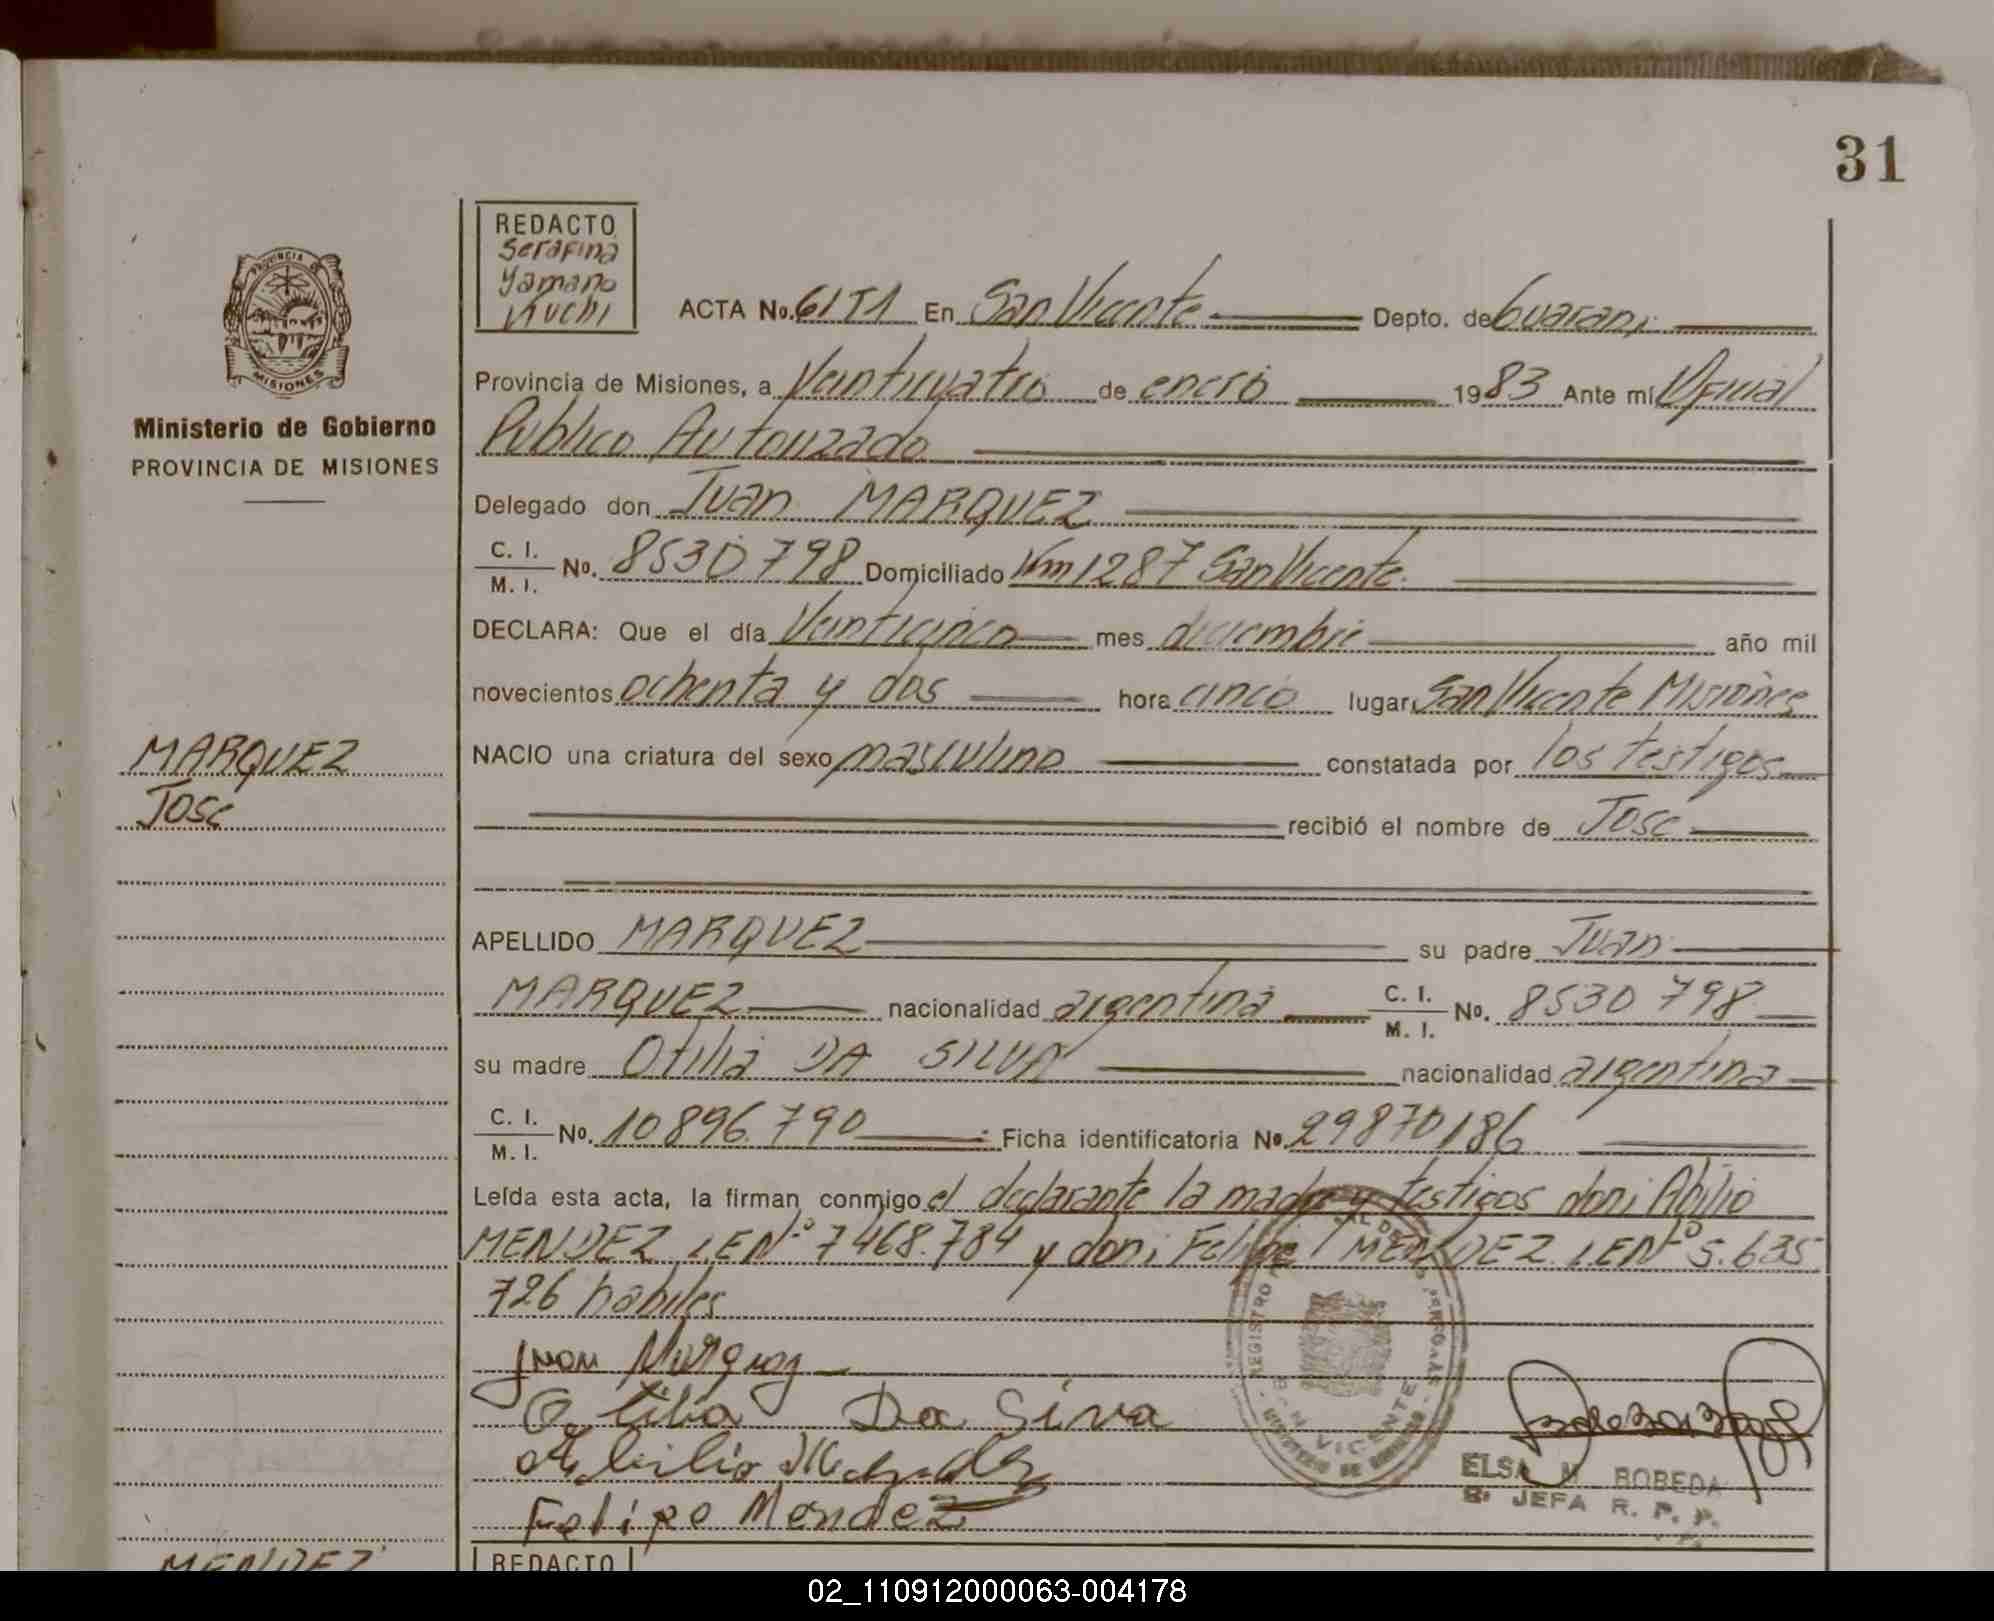 31
REDACTO
Serafina
Yamano
Kuchi
PROVINCIA DE
MISIONES
ACTA No. 61T1 En San Vicente Depto. de Guarani
Ministerio de Gobierno
PROVINCIA DE MISIONES
Provincia de Misiones, a Veinticuatro de enero 1983 Ante mi Oficial
Publico Autorizado
Delegado don Juan MARQUEZ
C. I.
M. I. No. 8530798 Domiciliado Km 1287 San Vicente.
DECLARA: Que el día Veinticinco mes diciembre año mil
novecientos ochenta y dos hora cinco lugar San Vicente Misiones
NACIO una criatura del sexo masculino constatada por los testigos
recibió el nombre de Jose
MARQUEZ
Jose
APELLIDO MARQUEZ su padre Juan
MARQUEZ nacionalidad argentina C. I. M. I. No. 8530798
su madre Otilia DA SILVA nacionalidad argentina
C. I.
M. I. No. 10896.790 Ficha identificatoria No. 29870186
Leída esta acta, la firman conmigo el declarante la madre y testigos don: Abilio
MENDEZ LE Nº 7468.784 y don: Felipe MENDEZ LE Nº 5.635
726 habiles
Juan Marquez
Otilia Da Siva
Abilio Mendez
Felipe Mendez
REGISTRO
VICENTE
ELSA M BOBEDA
JEFA R. P. P.
MENDEZ
REDACTO
02_110912000063-004178